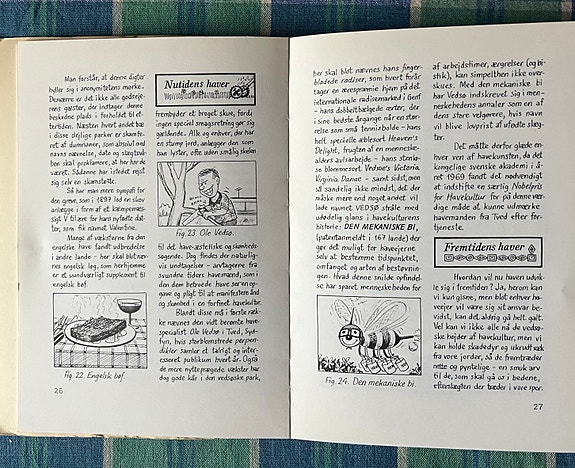 Man forstår, at denne digter
hyller sig i anonymitetens mørke.
Desværre er det ikke alle goderje-
rens gæster, der indtager denne
beskedne plads i forholdet til ef-
tertiden. Næsten hvert andet træ
i disse dejlige parker er skamfe-
ret af dumrianer, som absolut må
navns nævnelse, dato og slagtrub-
ben skal proklamere, at her har de
været. Sådanne har i stedet rejst
sig selv en skamstøtte.
Så har man mere sympati for
den greve, som i 1897 lod en sløv
anlægge i form af et kæmpemæs-
sigt V til ære for hans nyfødte dat-
ter, som fik navnet Valentine.
Mange af væksterne fra den
engelske have fandt udbredelse
i andre lande - her skal blot næv-
nes engelsk løg, som herhjemme
er et uundværligt supplement til
engelsk bøf.
Fig. 22. Engelsk bøf.
26
Nutidens haver
frembyder et broget skue, fordi
ingen speciel smagsretning gør sig
gældende. Alle og enhver, der har
en stump jord, anlægger den som
han lyster, ofte uden smålig skelen
Fig. 23. Ole Vedsø.
til det have-æstetiske og samheds-
søgende. Dog findes der naturlig-
vis undtagelser - arvtagerne fra
svundne tiders havemænd, som i
den dem betroede have ser en op-
gave og pligt til at manifestere ånd
og skønhed i en forfinet havekultur.
Blandt disse må i første ræk-
ke nævnes den vidt berømte have-
specialist Ole Vedsø i Tved, Syd-
fyn, hvis storblomstrede perpen-
dikler samler et talrigt og inter-
esseret publikum hvert år. Også
de mere nytteprægede vækster har
dog gode kår i den vedsøske park,
her skal blot nævnes hans finger-
bladede radiser, som hvert forår
tager en ærespræmie hjem på det
internationale radisemarked i Genf
- hans dobbelthælgede ærter, der
i sine bedste årgange når en stør-
relse som små tennisbolde - hans
helt specielle æblesort Heaven's
Delight, frugten af en menneske-
alders avlsarbejde - hans stenlø-
se blommesort Vedsøe's Victoria
Virginia Danae - samt sidst, men
så sandelig ikke mindst, det der
måske mere end noget andet vil
lade navnet VEDSØ stråle med
udødelig glans i havekulturens
historie: DEN MEKANISKE BI,
(patentanmeldt i 167 lande) der
gør det muligt for haveejerne
selv at bestemme tidspunktet,
omfanget og arten af bestøvnin-
gen. Hvad denne snilde opfindel-
se har sparet menneskeheden for
Fig. 24. Den mekaniske bi.
af arbejdstimer, ærgrelser (og bi-
stik), kan simpelthen ikke over-
skues. Med Den mekaniske bi
har Vedsø indskrevet sig i men-
neskehedens annaler som en af
dens store velgørere, hvis navn
vil blive lovprist af ufødte slæg-
ter.
Det måtte derfor glæde en-
hver ven af havekunsten, da det
kongelige svenske akademi i å-
ret 1969 fandt det nødvendigt
at indstifte en særlig Nobelpris
for Havekultur for på denne vær-
dige måde at kunne udmærke
havemanden fra Tved efter for-
tjeneste.
Fremtidens haver
Hvordan vil nu haven udvik-
le sig i fremtiden? Ja, herom kan
vi kun gisne, men blot enhver ha-
veejer vil være sig sit ansvar be-
vidst, kan det aldrig gå helt galt.
Vel kan vi ikke alle nå de vedsø-
ske højder af havekultur, men vi
kan holde skadedyr og ukrudt væk
fra vore jorder, så de fremtræder
nette og pyntelige - en smuk arv
til de, som skal gå os i bedene,
efterslægten der træder i vore spor.
27